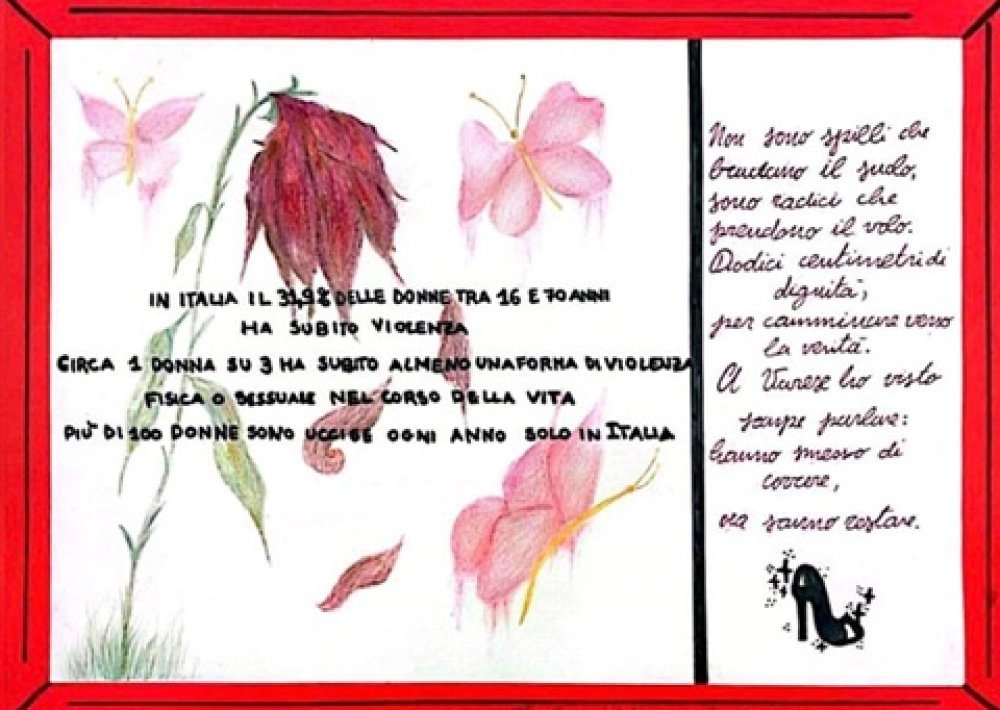 IN ITALIA IL 31,9% DELLE DONNE TRA 16 E 70 ANNI
HA SUBITO VIOLENZA
CIRCA 1 DONNA SU 3 HA SUBITO ALMENO UNA FORMA DI VIOLENZA
FISICA O SESSUALE NEL CORSO DELLA VITA
PIÙ DI 100 DONNE SONO UCCISE OGNI ANNO SOLO IN ITALIA
Non sono spilli che
bucano il suolo,
sono radici che
prendono il volo.
Dodici centimetri di
dignità,
per camminare verso
la verità.
A Varese ho visto
scarpe parlare:
hanno smesso di
correre,
ora sanno restare.